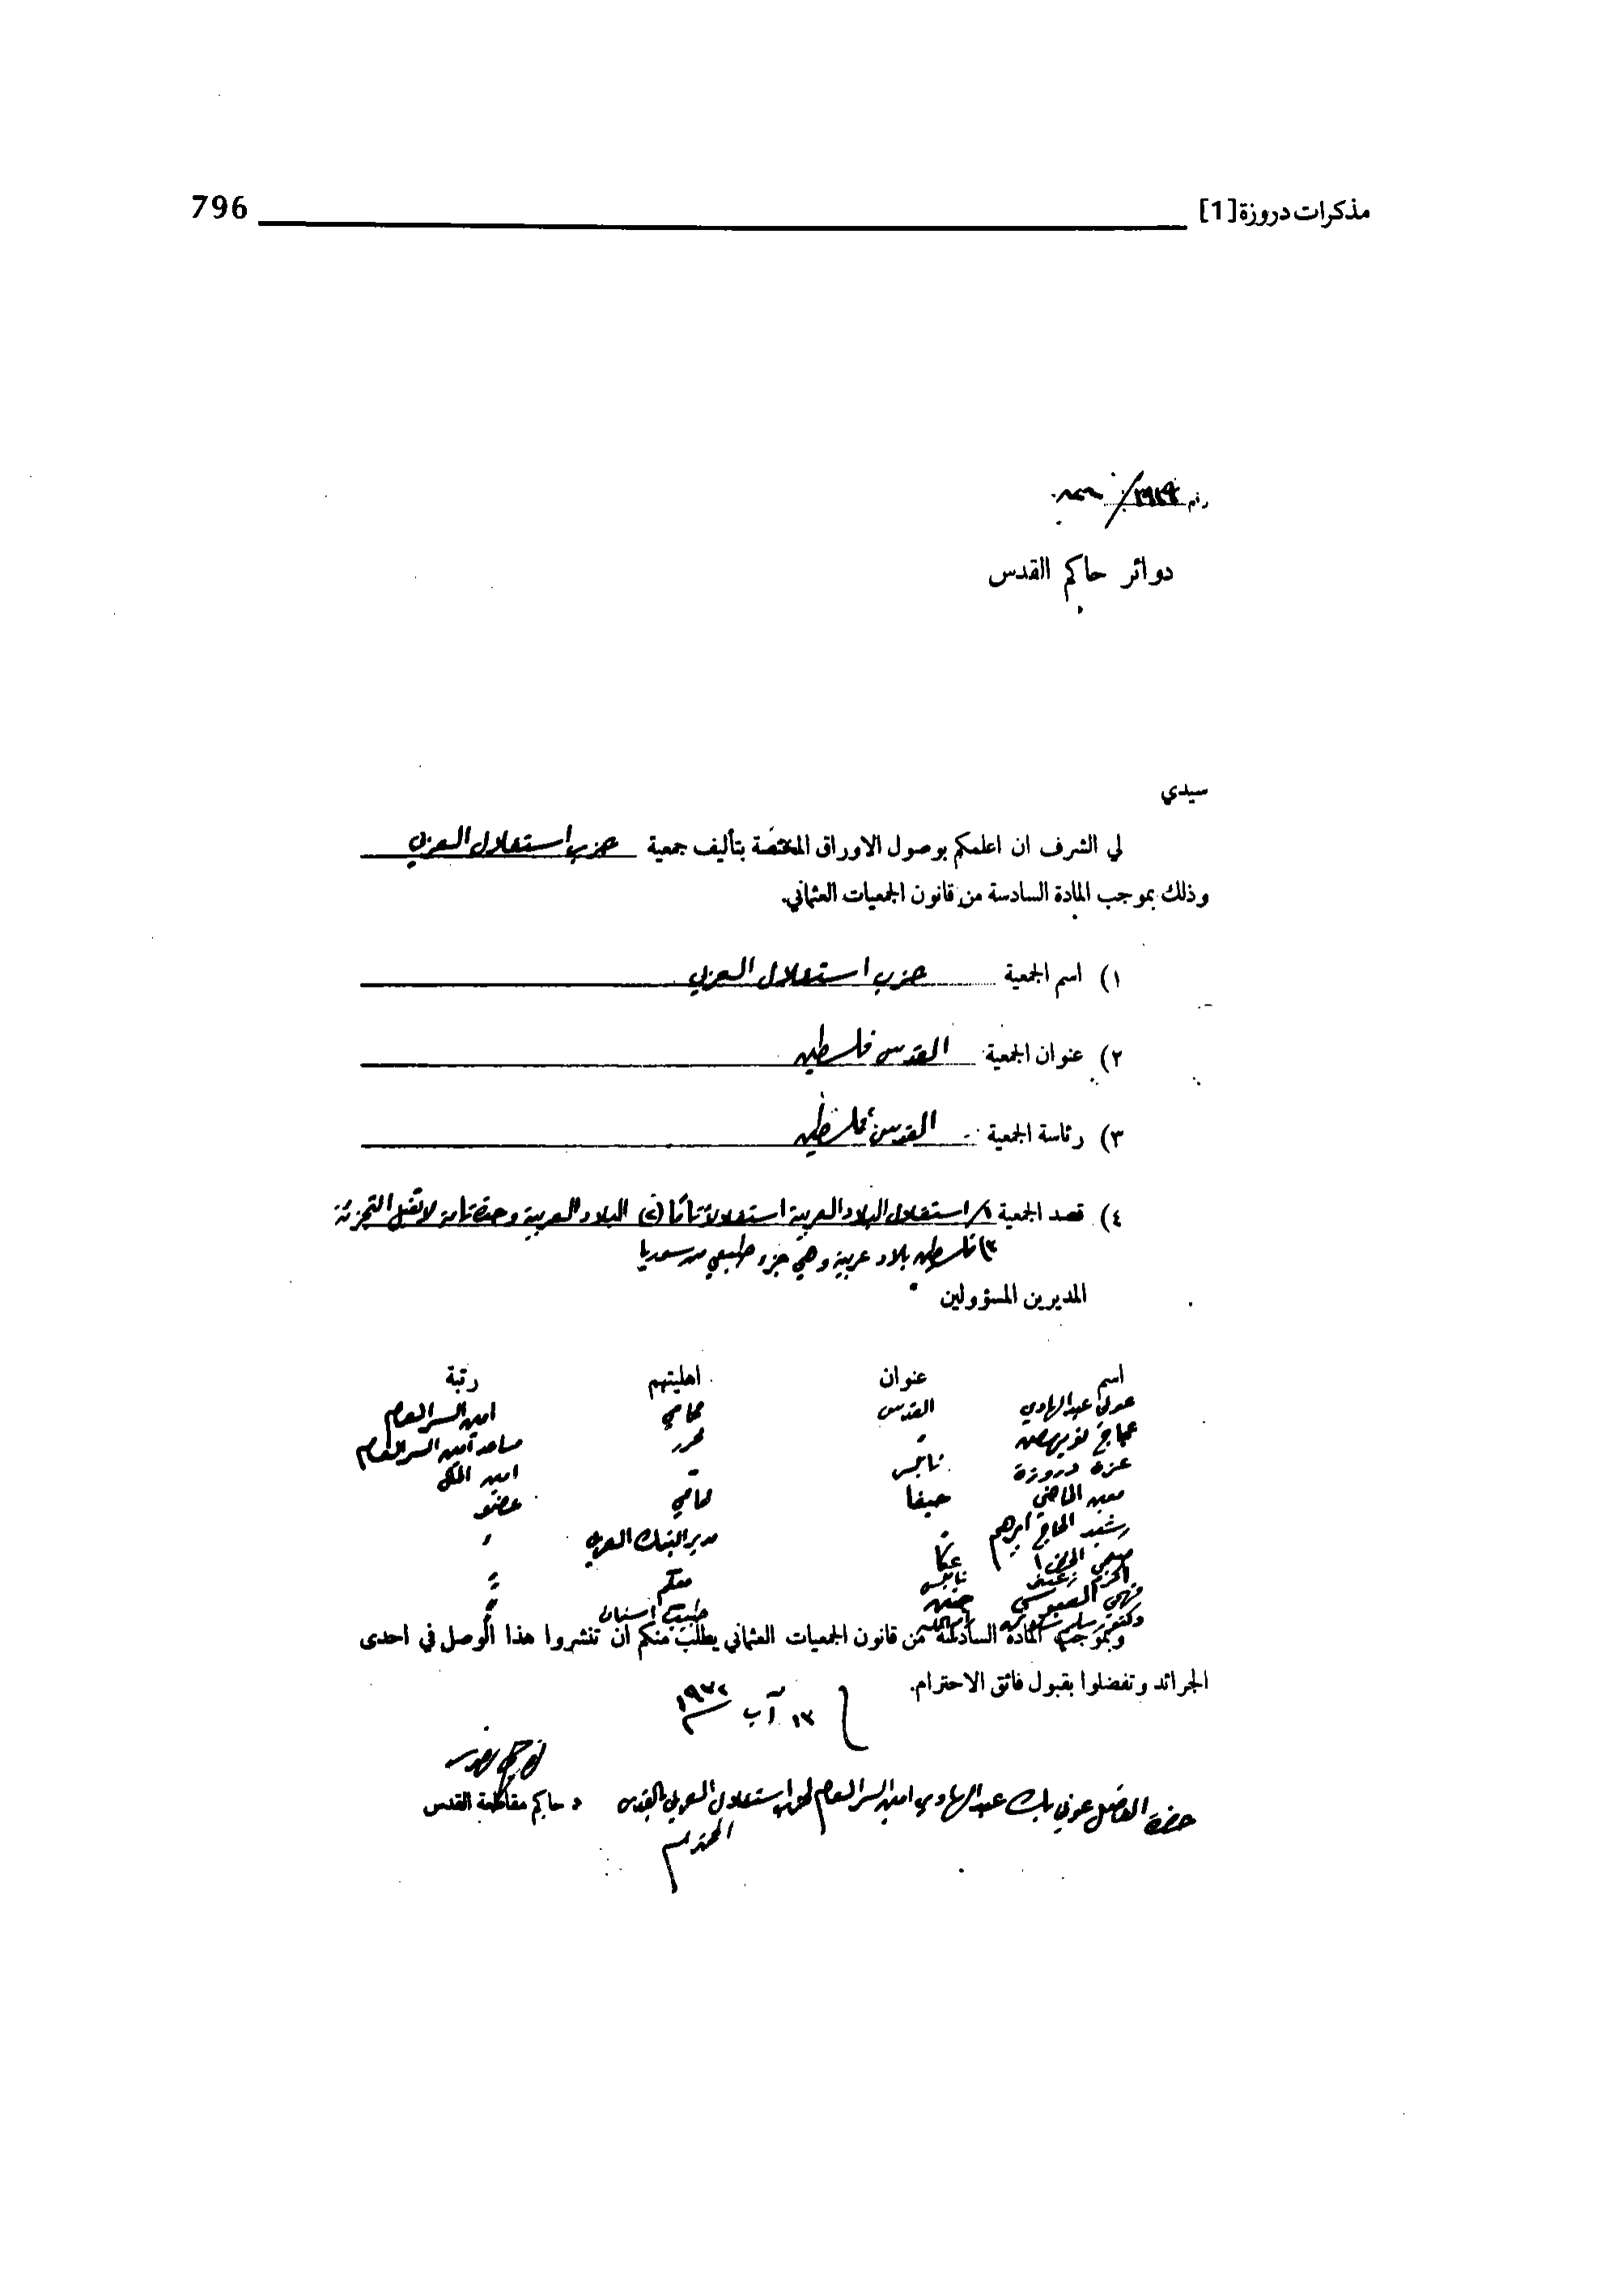 مذكرات دروزة [1] 796
رقم
دوائر حاكم القدس
سيدي
لي الشرف ان اعلمكم بوصول الاوراق المختصة بتأليف جمعية حزب استقلال العربي
وذلك بموجب المادة السادسة من قانون الجمعيات العثماني.
١) اسم الجمعية حزب استقلال العربي
٢) عنوان الجمعية القدس فلسطين
٣) رئاسة الجمعية القدس فلسطين
٤) قصد الجمعية ١/ استقلال البلاد العربية استقلالاً تاماً (٢) البلاد العربية وحدة تامة لا تقبل التجزئة
٣) فلسطين بلاد عربية وهي جزء طبيعي من سوريا
المديرين المسؤولين
اسم عنوان اهليتهم رتبة
عوني عبد الهادي القدس محامي امين السر العام
عجاج نويهض " محرر مساعد امين السر العام
عزة دروزة نابلس امين المال
معين الماضي حيفا محامي عضو
رشيد الحاج ابرهيم " مدير البنك العربي "
صبحي الخضرا عكا
اكرم زعيتر نابلس معلم "
فهمي العبوشي جنين "
دكتور سليم سلامة طبيب اسنان "
وبموجب المادة السادسة من قانون الجمعيات العثماني يطلب منكم ان تنشروا هذا الوصل في احدى
الجرائد وتفضلوا بقبول فائق الاحترام.
١٣ آب ١٩٣٢
حاكم مقاطعة القدس
حضرة الفاضل عوني بك عبد الهادي امين السر العام لحزب استقلال العربي القدس
المحترم